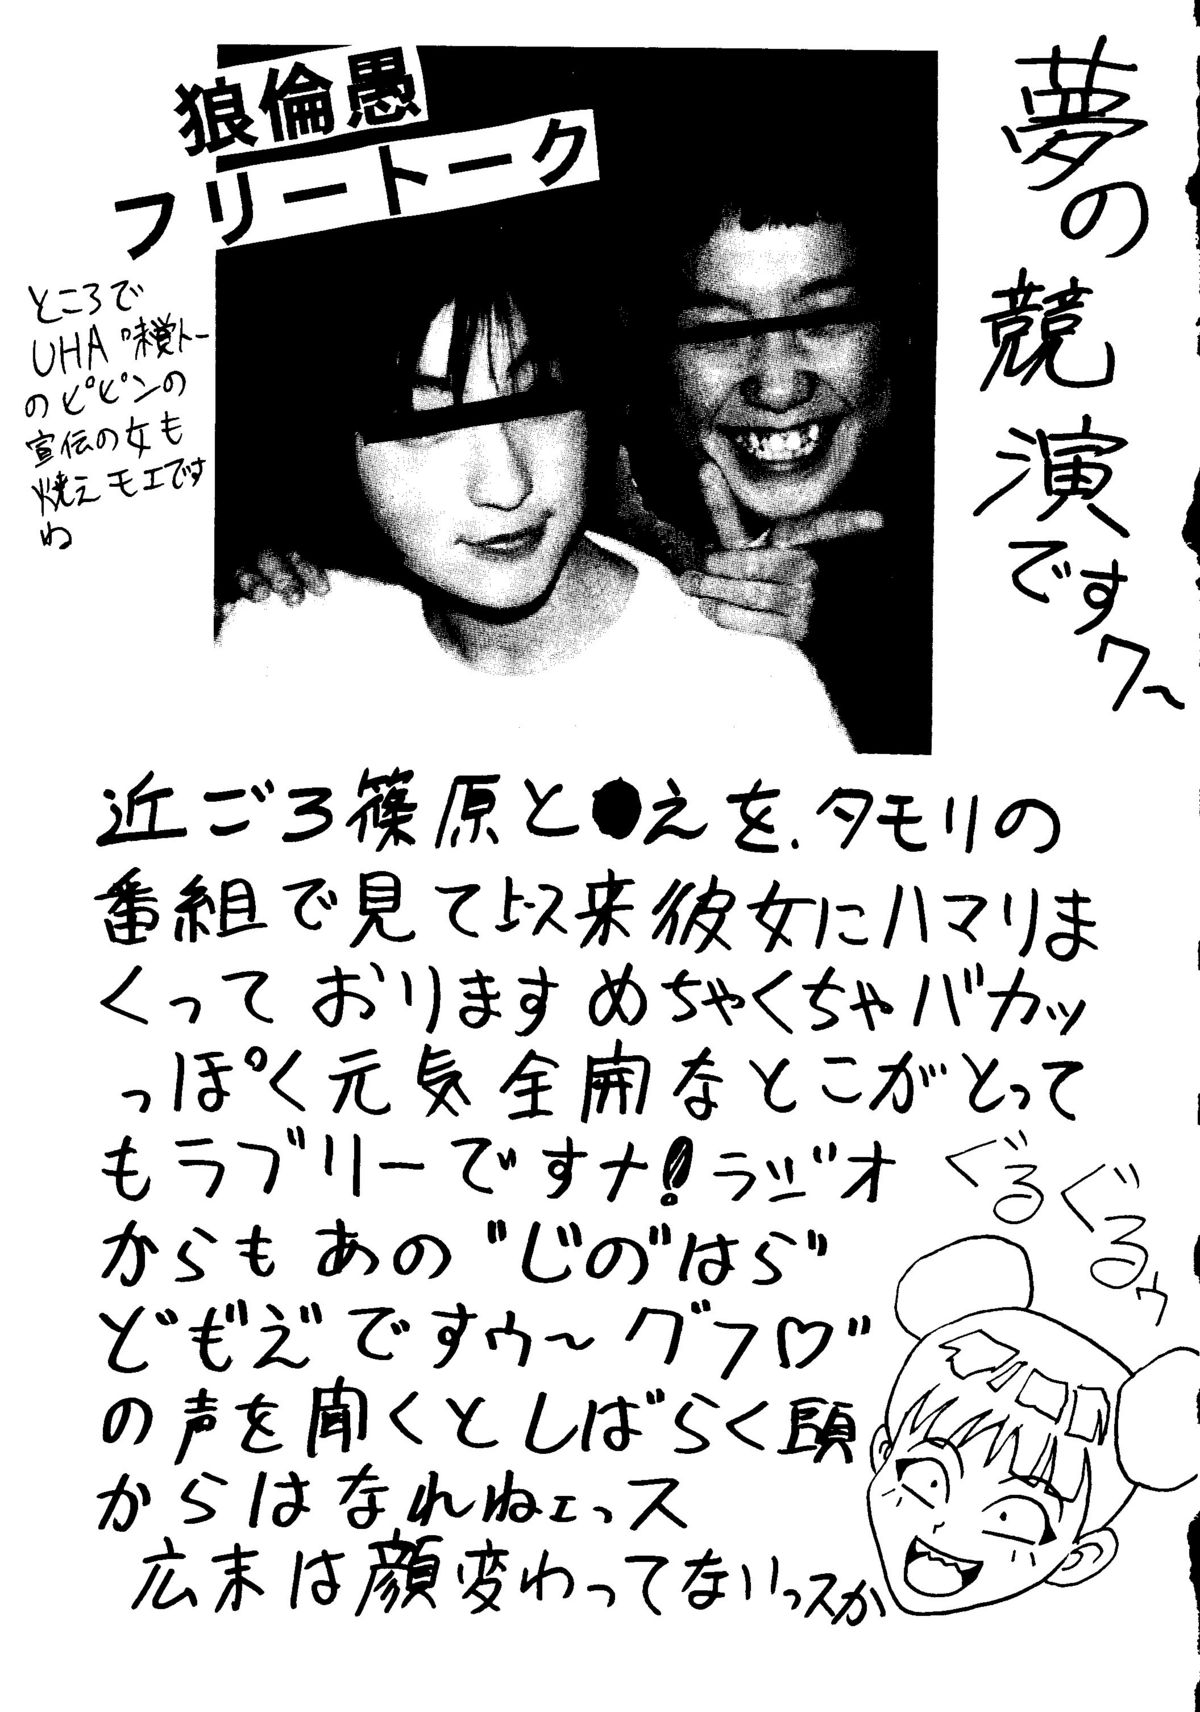 狼倫愚
フリートーク
夢の競演ですワ〜
ところで
UHA味覚トー
のピピンの
宣伝の女も
燃えモエです
ね
近ごろ篠原と●えを、タモリの
番組で見て以来彼女にハマりま
くっております めちゃくちゃバカッ
っぽく元気全開なとこがとって
もラブリーですナ!ラジオ
からも あの "じの゛はら゛
ど も゛え゛ですゥ〜 グフ♡"
の声を聞くと しばらく頭
からはなれねェっス
広末は顔変わってないっスか
ぐるぐるゥ